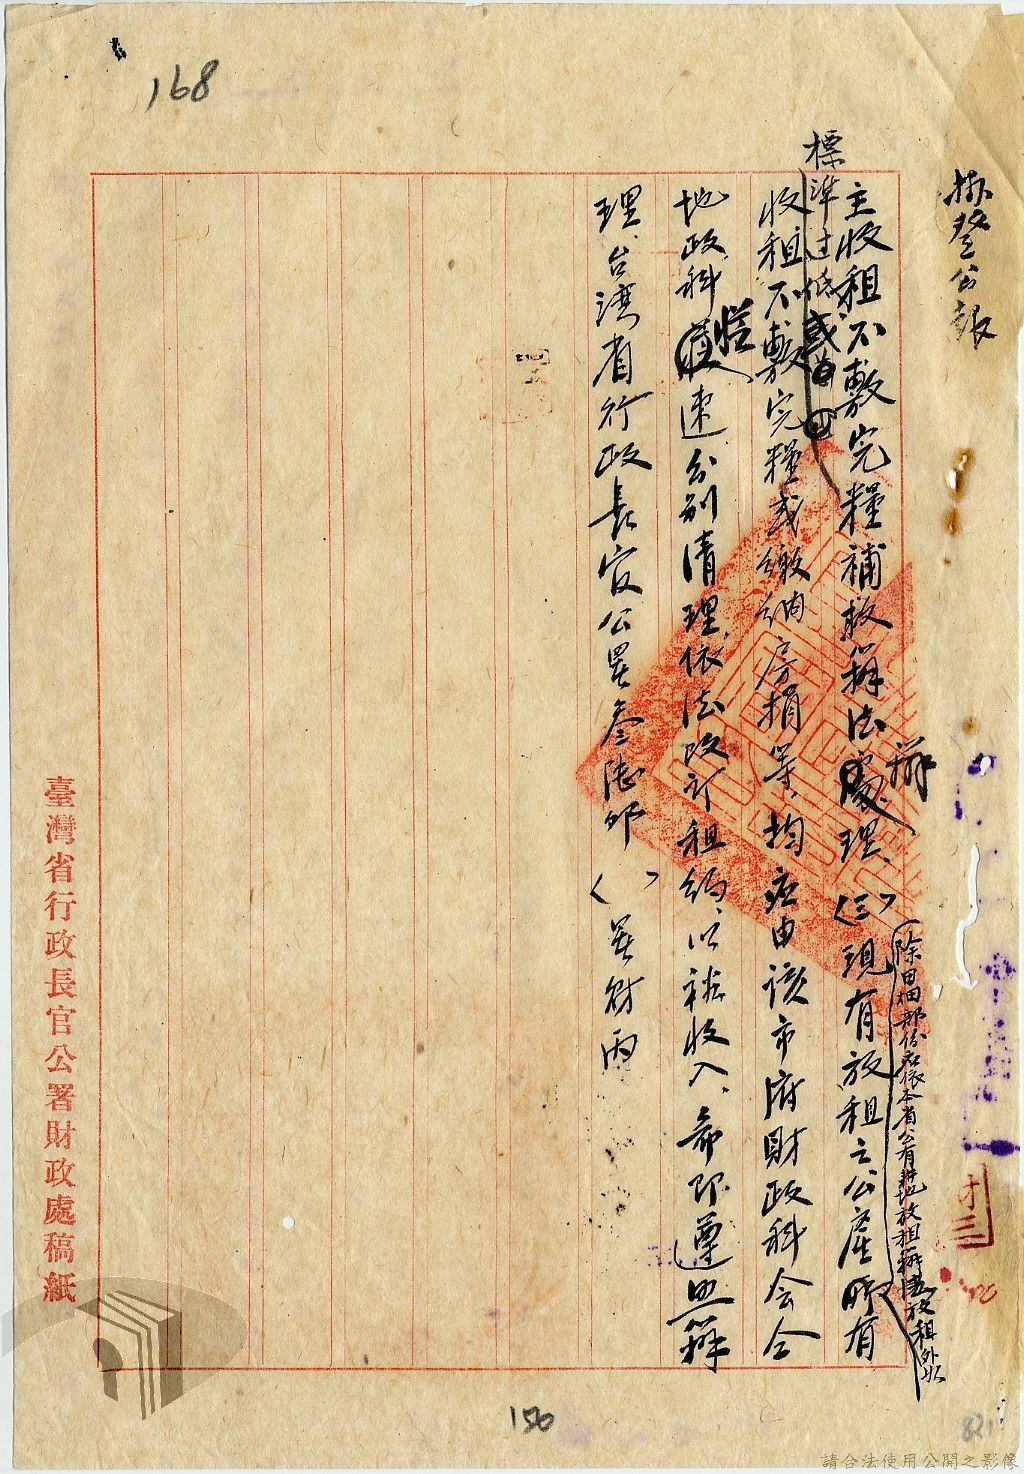 168
掛登公報
主收租不敷完糧補救辦法處理、(三)現有放租之公產所有
辦
除田畑部份應依本省公有耕地放租辦法放租外如
標準过低或
收租不敷完糧或繳納房捐等、均应由該市府財政科会仝
地政科從速分別清理依法改訂租約、以裕收入、希即遵照辦
理、台湾省行政長官公署叁陸卯( )署財丙
臺灣省行政長官公署財政處稿紙
150
821
請合法使用公開之影像